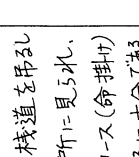 桟道を吊るし
所に見られ、
ース(命掛け)